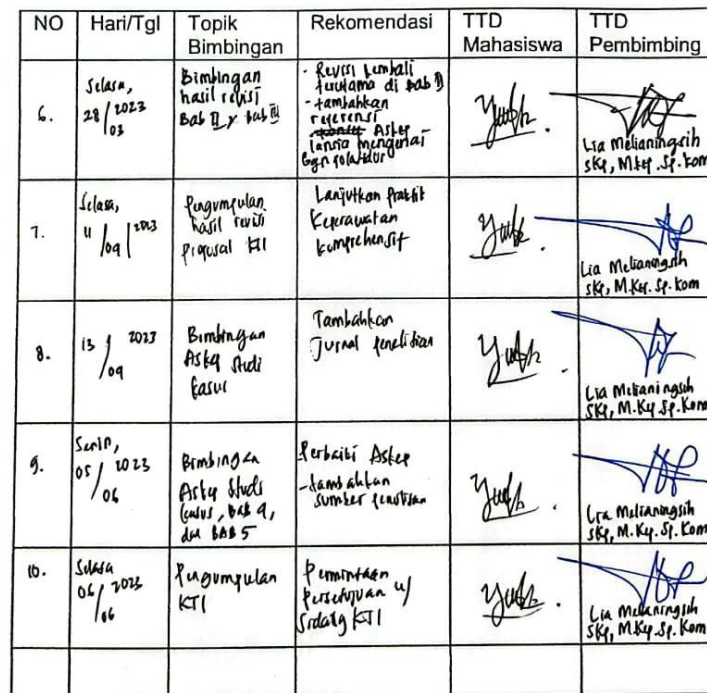 NO Hari/Tgl Topik Bimbingan Rekomendasi TTD Mahasiswa TTD Pembimbing
6.
Selasa,
28/2023
03
Bimbingan
hasil revisi
Bab II & bab III
- Revisi kembali
terutama di bab II
- tambahkan
referensi
Askep
lansia mengenai
Lia Melianingsih
SKp, M.Kep. Sp. Kom
7.
Selasa,
11/09/2023
Pengumpulan
hasil revisi
proposal KTI
Lanjutkan Praktik
Keperawatan
komprehensif
Lia Melianingsih
SKp, M.Kep. Sp. Kom
8.
13/2023
09
Bimbingan
Askep Studi
kasus
Tambahkan
Jurnal penelitian
Lia Melianingsih
SKp, M.Kep. Sp. Kom
9.
Senin,
05/2023
06
Bimbingan
Askep Studi
kasus, bab 4,
dan BAB 5
Perbaiki Askep
- tambahkan
sumber penulisan
Lia Melianingsih
SKp, M.Kep. Sp. Kom
10.
Selasa
06/2023
06
Pengumpulan
KTI
Permintaan
Persetujuan u/
Sidang KTI
Lia Melianingsih
SKp, M.Kep. Sp. Kom